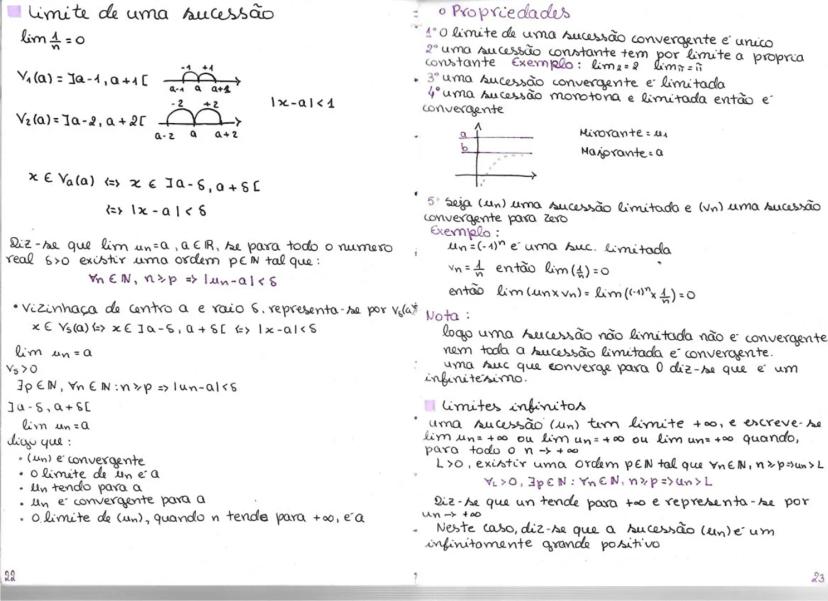 Limite de uma sucessão
lim 1/n = 0
V₁(a) = ]a-1, a+1[
-1 +1
a-1 a a+1
V₂(a) = ]a-2, a+2[
-2 +2
a-2 a a+2
|x-a| < 1
x ∈ Va(a) <=> x ∈ ]a-δ, a+δ[
<=> |x-a| < δ
Diz-se que lim un=a, a∈ℝ, se para todo o numero
real δ>0 existir uma ordem p∈ℕ tal que:
∀n∈ℕ, n≥p => |un-a|<δ
• Vizinhaça de centro a e raio δ, representa-se por Vδ(a):
x ∈ Vδ(a) <=> x ∈ ]a-δ, a+δ[ <=> |x-a|<δ
lim un = a
∀δ>0
∃p∈ℕ, ∀n∈ℕ: n≥p => |un-a|<δ
]a-δ, a+δ[
lim un=a
digo que:
• (un) é convergente
• o limite de un é a
• un tende para a
• un é convergente para a
• o limite de (un), quando n tende para +∞, é a
22
o Propriedades
1º O limite de uma sucessão convergente é unico
2º uma sucessão constante tem por limite a propria
constante Exemplo: lim 2=2 lim π=π
3º uma sucessão convergente é limitada
4º uma sucessão monotona e limitada então é
convergente
a
b
Minorante = u₁
Majorante = a
5º Seja (un) uma sucessão limitada e (vn) uma sucessão
convergente para zero
Exemplo:
un=(-1)ⁿ é uma suc. limitada
vn = 1/n então lim(1/n)=0
então lim(un×vn) = lim((-1)ⁿ × 1/n) = 0
Nota:
logo uma sucessão não limitada não é convergente
nem toda a sucessão limitada é convergente.
uma suc que converge para 0 diz-se que é um
infinitésimo.
Limites infinitos
uma sucessão (un) tem limite +∞, e escreve-se
lim un = +∞ ou lim un = +∞ ou lim un = +∞ quando,
para todo o n -> +∞
L>0, existir uma ordem p∈ℕ tal que ∀n∈ℕ, n≥p=>un>L
∀L>0, ∃p∈ℕ: ∀n∈ℕ, n≥p => un>L
Diz-se que un tende para +∞ e representa-se por
un -> +∞
Neste caso, diz-se que a sucessão (un) é um
infinitamente grande positivo
23